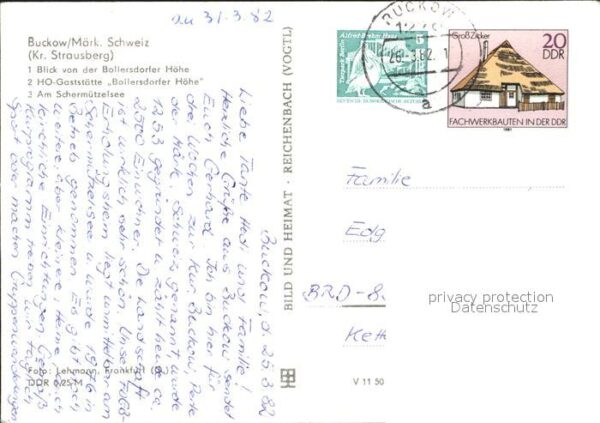 zu 31.3.82
Buckow/Märk. Schweiz
(Kr. Strausberg)
1 Blick von der Bollersdorfer Höhe
2 HO-Gaststätte „Bollersdorfer Höhe"
3 Am Schermützelsee
Buckow, d. 25.3.82
Liebe Tante Hedi und Familie!
Herzliche Grüße aus Buckow sendet
Euch Gerhard. Ich bin hier für
die Wochen zur Kur. Buckow, Perle
der Märk. Schweiz genannt wurde
1253 gegründet u. zählt heute ca.
2500 Einwohner. Die Landschaft
ist wirklich sehr schön. Unser FDGB-
Erholungsheim liegt unmittelbar am
Schermützelsee u. wurde 1976 in
Betrieb genommen. Es gibt noch
weitere aber kleinere Heime u. auch
kirchliche Einrichtungen. Gemäß
Kurprogramm treiben wir täglich
Sport oder machen Gruppenwanderungen
Foto: Lehmann, Frankfurt (O.)
DDR 0,25 M
BILD UND HEIMAT · REICHENBACH (VOGTL)
V 11 50
Alfred Brehm Haus
Tierpark Berlin
BUCKOW
a
Groß Zicker
20
DDR
FACHWERKBAUTEN IN DER DDR
1981
Familie
Edg
BRD-8
Keth
privacy protection
Datenschutz